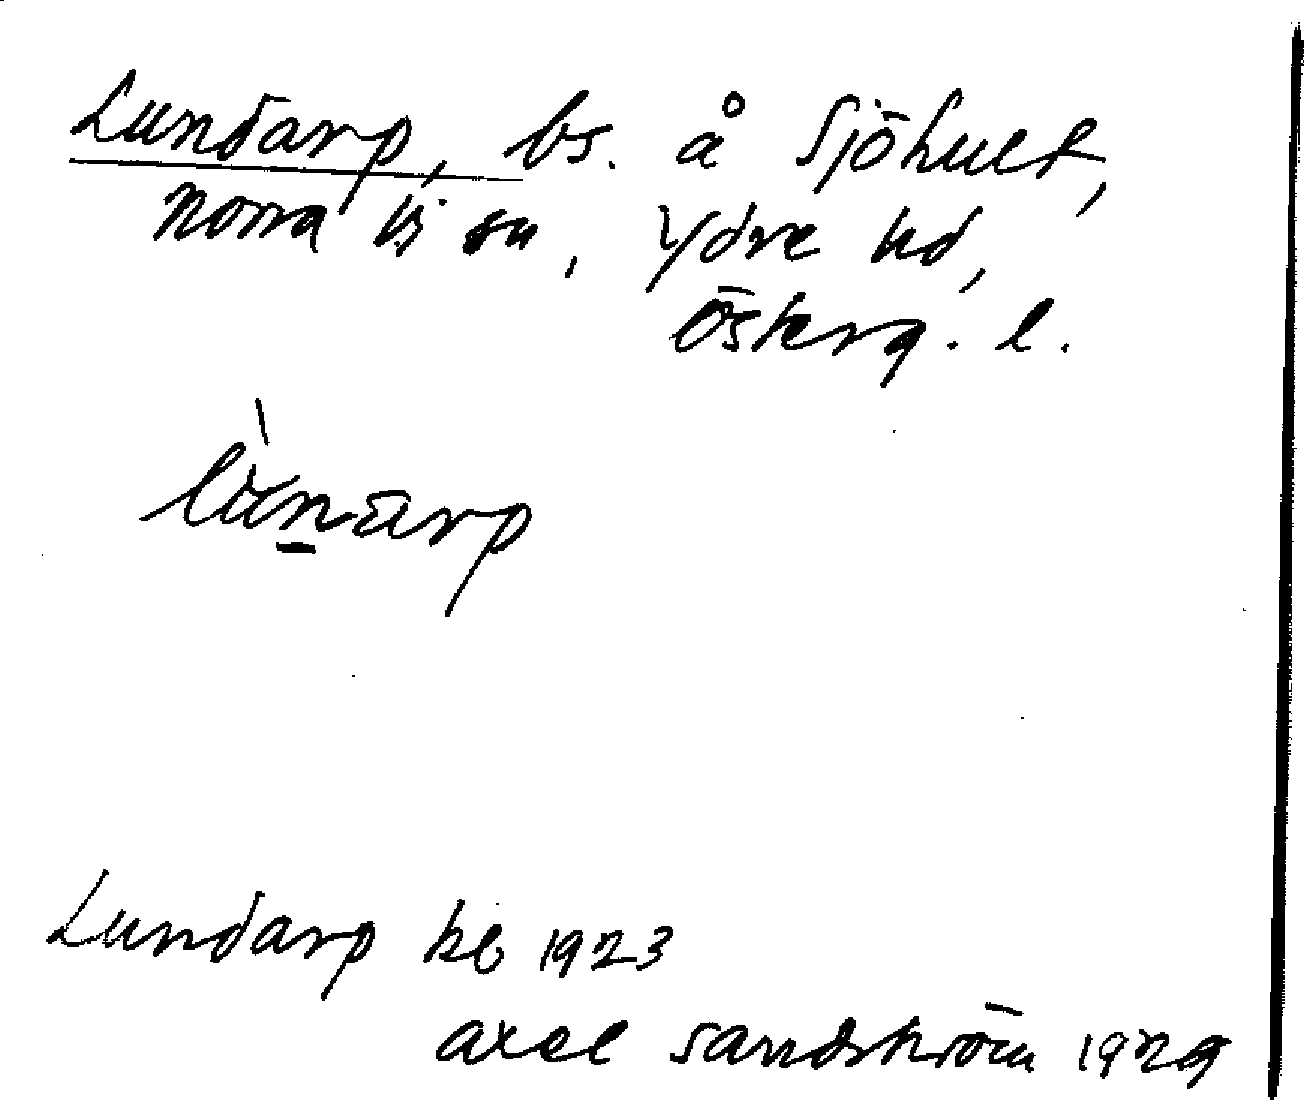 Lundarp, bs. å Sjöhult,
Norra Vi sn, Ydre hd,
Österg. l.
lùnarp
Lundarp kb 1923
Axel Sandström 1929